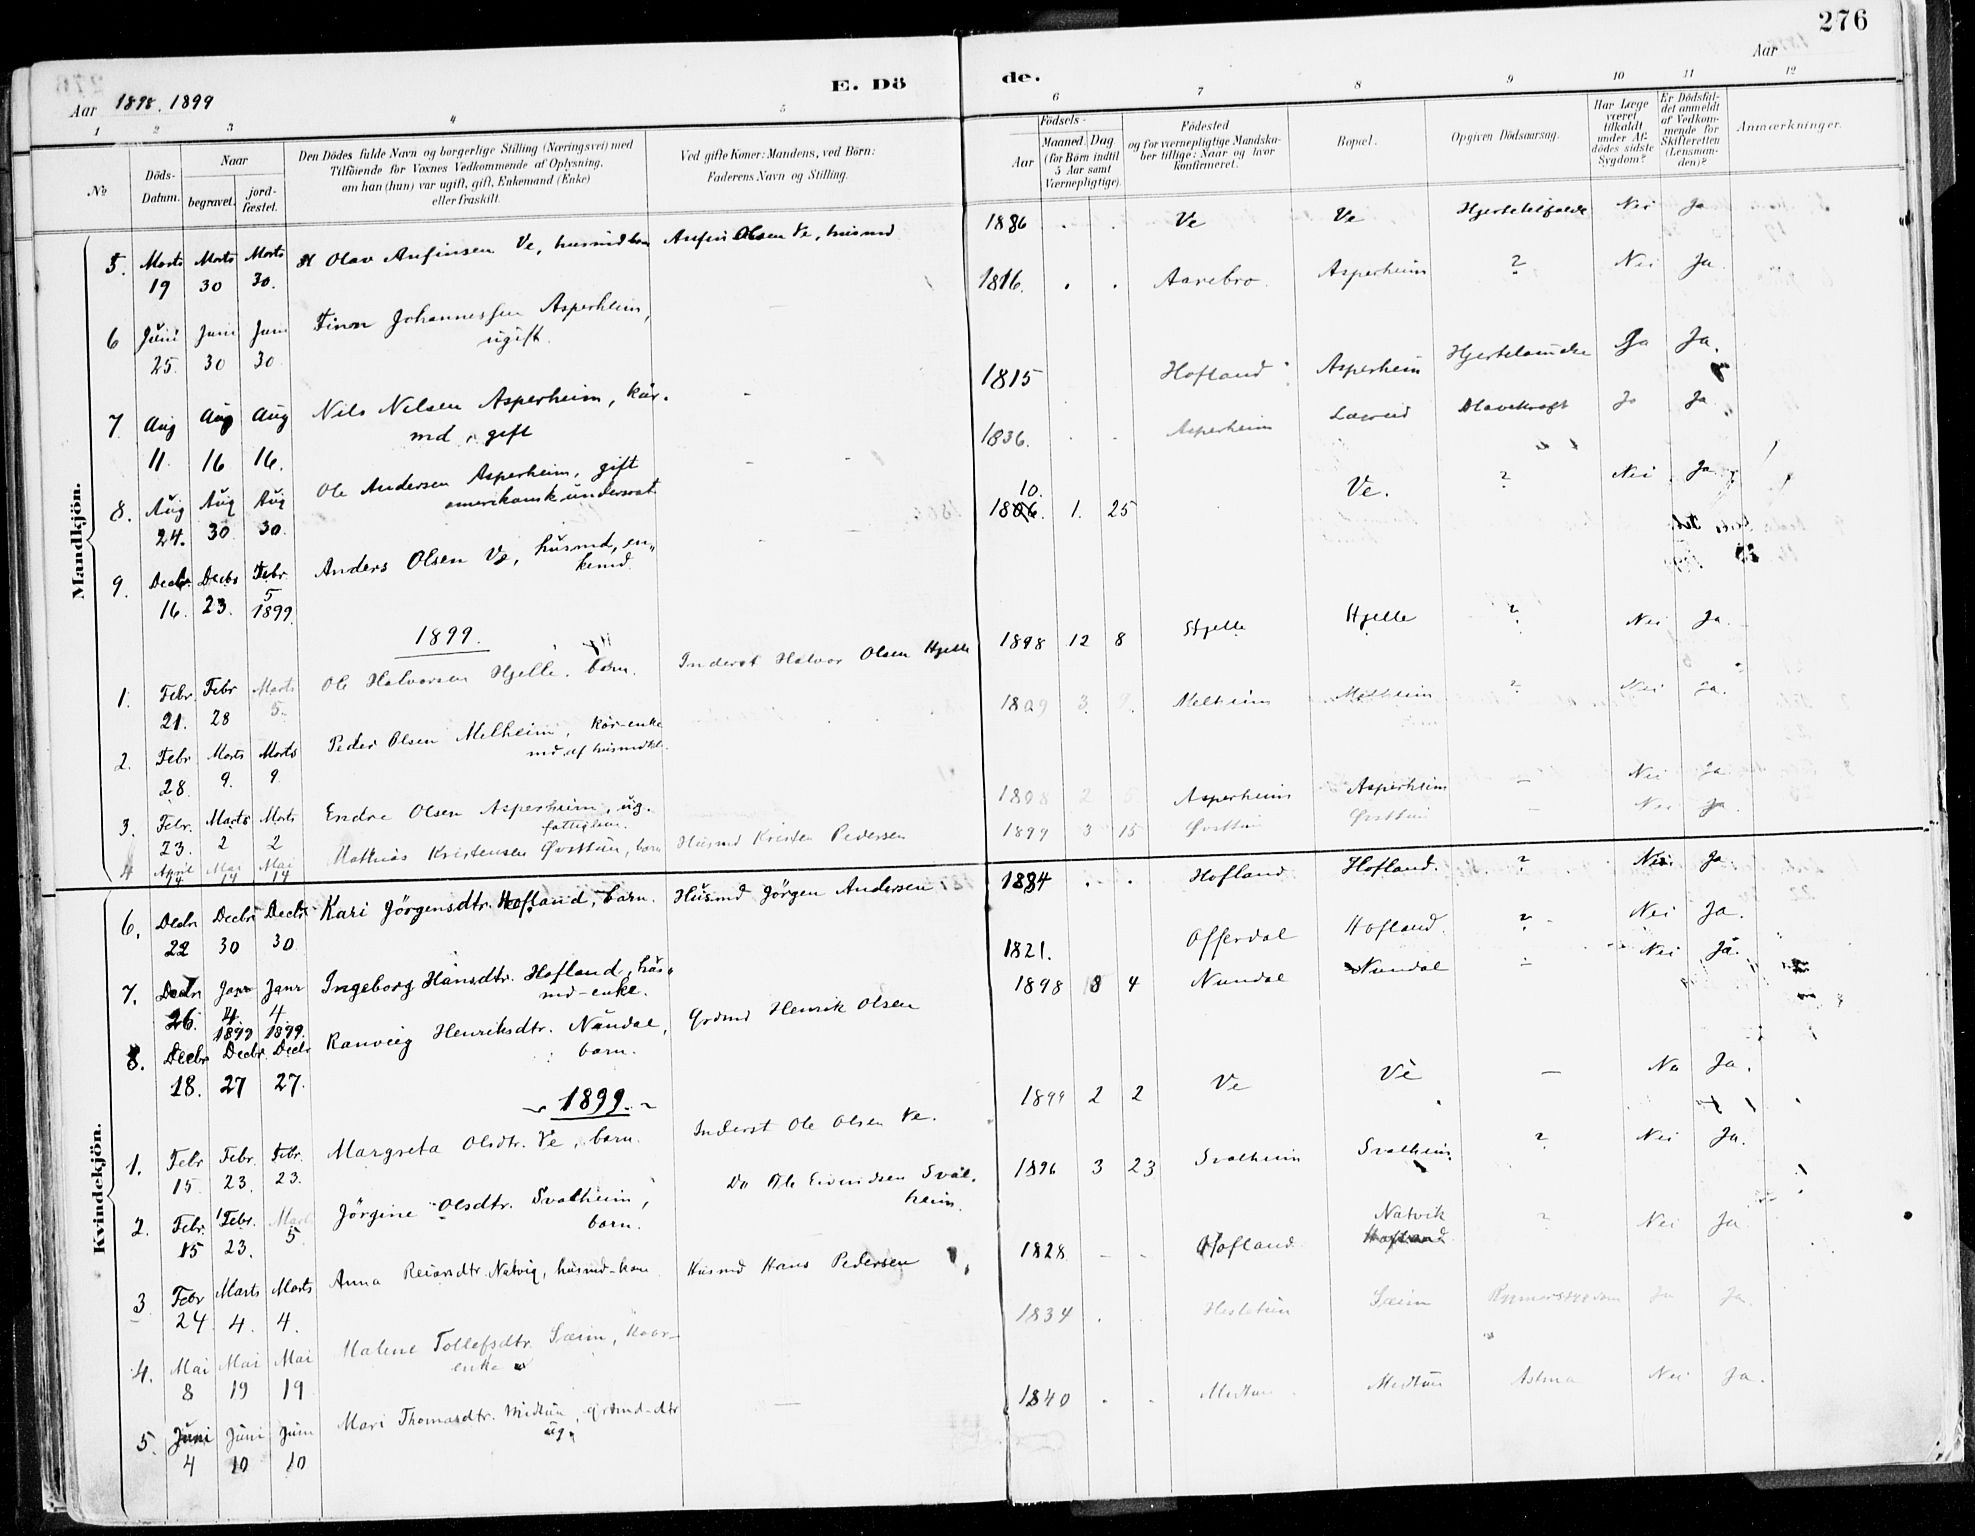 276
Aar 1898. 1899
E. Dö de.
Aar
1 2 3 4 5 6 7 8 9 10 11 12
No
Döds-Datum.
Naar
begravet.
jord-fæstet.
Den Dödes fulde Navn og borgerlige Stilling (Næringsvei) med
Tilföiende for Voxnes Vedkommende af Oplysning,
om han (hun) var ugift, gift, Enkemand (Enke)
eller fraskilt.
Ved gifte Koner: Mandens, ved Börn:
Faderens Navn og Stilling.
Födsels-
Aar
Maaned. Dag
(for Börn indtil
5 Aar samt
Værnepligtige).
Födested
og for værnepligtige Mandska-
ber tillige: Naar og hvor
konfirmeret.
Bopæl.
Opgiven Dödsaarsag.
Har Læge
været
tilkaldt
under Af-
dödes sidste
Sygdom?
Er Dödsfal-
det anmeldt
af Vedkom-
mende for
Skifteretten
(Lensman-
den)?
Anmærkninger.
Mandkjön.
5. Marts 19 Marts 30 Marts 30. Olav Anfinsen Ve, Anfin Olsen Ve, husmd 1886 . . Ve Ve Nei Ja
6 Juni 25. Juni 30 Juni 30. Johannessen Asperheim,
ugift. 1816. . . Aarebro. Asperheim ? Nei Ja.
7 Aug 11. Aug 16 Aug 16. Nils Nilsen Asperheim, kår-
md, gift 1815 Hofland Asperheim Ja Ja.
8. Aug 24. Aug 30 Aug 30. Ole Andersen Asperheim, gift
amerikansk undersaat. 1836. . . Asperheim Ja Ja.
9. Decbr. 16. Decbr 23. Febr. 5 1899. Anders Olsen Ve, husmd, en-
kemd. 10. 1806. 1. 25 Ve. ? Nei Ja.
1899.
1. Febr. 21. Febr 28 Marts 5. Ole Halvorsen Hjelle. barn. Inderst Halvor Olsen Hjelle 1898 12 8 Hjelle Hjelle ? Nei Ja.
2. Febr 28. Marts 9. Marts 9. Peder Olsen Melheim, kår-enke
md. af 1809 3. 9. Melheim Melheim ? Nei Ja.
3. Febr. 23. Marts 2 Marts 2 Endre Olsen Asperheim, ug.
fattiglem. Asperheim Asperheim — Nei Ja.
4 April 14 Mai 14 Mai 14 Mathias Kristensen Øvsttun, barn Husmd Kristen Pedersen 1899 3 15 Øvsttun Øvsttun — Nei Ja.
Kvindekjön.
6. Decbr 22 Decbr 30 Decbr 30. Kari Jörgensdtr. Hofland, barn. Husmd Jörgen Andersen 1884 . . Hofland Hofland. ? Nei Ja.
7. Decbr 26. Janr 4. 1899 Janr 4. 1899. Ingeborg Hansdtr. Hofland, hus-
md-enke. 1821. Offerdal Hofland. ? Nei Ja.
8. Decbr 18. Decbr. 27 Decbr 27. Ranveig Henriksdtr. Nundal,
barn. Grdmd Henrik Olsen 1898 8 4 Nundal Nundal — Nei Ja.
1899.
1. Febr 15. Febr. 23. Febr. 23. Margreta Olsdtr. Ve, barn. Inderst Ole Olsen Ve. 1899 2 2 Ve Ve — Nei Ja.
2. Febr. 15 Febr. 23. Marts 5. Jörgine Olsdtr. Svalheim,
barn. Do Ole Eivindsen Sval-
heim. 1896 3 23 Svalheim Svalheim ? Nei Ja.
3 Febr 24. Marts 4. Marts 4. Anna Reiarsdtr. Natvig, husmd-kone Husmd Hans Pedersen 1828 — — Hofland. Natvik
Hofland ? Nei Ja.
4. Mai 8 Mai 19 Mai 19 Malene Tollefsdtr. Sæim, kaar-
enke 1834 . . Sæim Ja Ja.
5. Juni 4 Juni 10 Juni 10 Mari Thomasdtr. Midtun, grdmd-dtr
ug. — 1840 . . Midtun Midtun Astma Nei Ja.